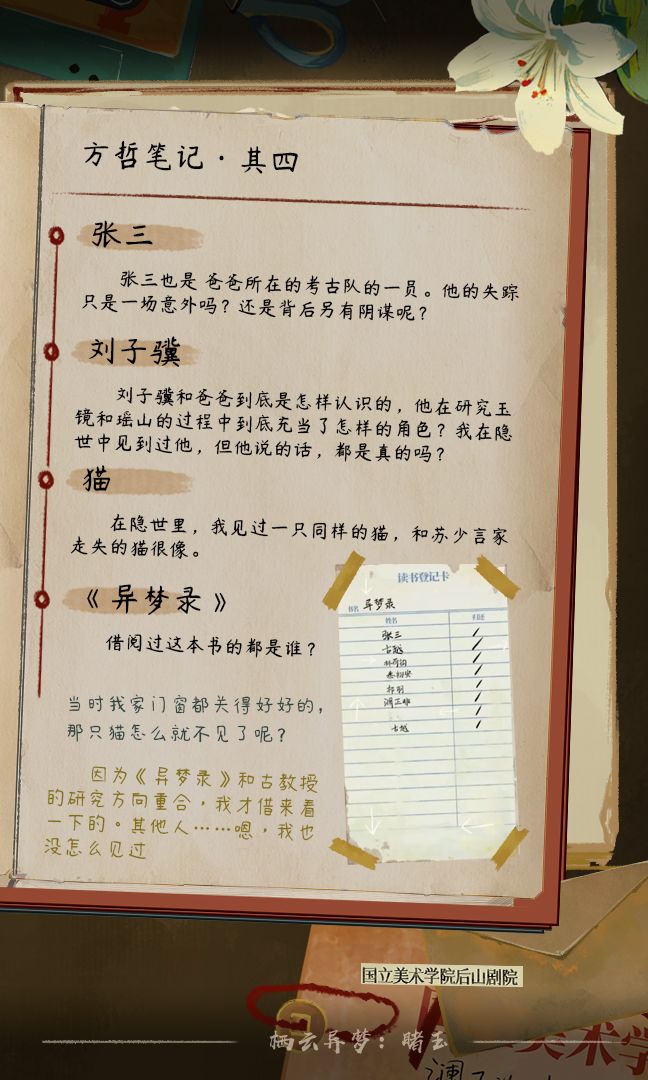 方哲笔记·其四
张三
张三也是爸爸所在的考古队的一员。他的失踪
只是一场意外吗？还是背后另有阴谋呢？
刘子骥
刘子骥和爸爸到底是怎样认识的，他在研究玉
镜和瑶山的过程中到底充当了怎样的角色？我在隐
世中见到过他，但他说的话，都是真的吗？
猫
在隐世里，我见过一只同样的猫，和苏少言家
走失的猫很像。
《异梦录》
借阅过这本书的都是谁？
当时我家门窗都关得好好的，
那只猫怎么就不见了呢？
因为《异梦录》和古教授
的研究方向重合，我才借来看
一下的。其他人……嗯，我也
没怎么见过
读书登记卡
书名 异梦录
姓名
张三
古越
古越
国立美术学院后山剧院
栖云异梦：睹玉
美术学